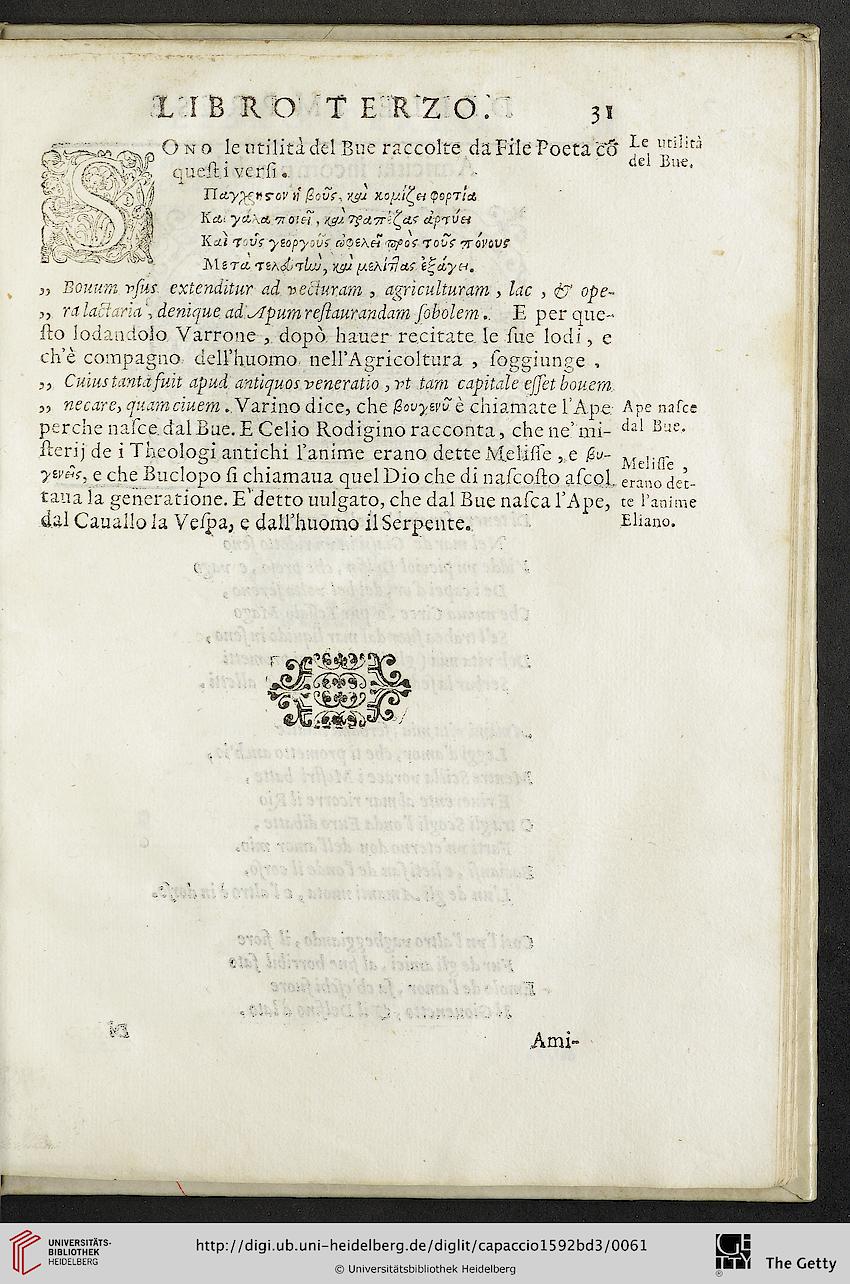 LIBRO TERZO. 31
SONO le utilità del Bue raccolte da File Poeta cõ
questi versi.
Le utilità
del Bue.
Πάγχρηστον ἡ βοῦς, καὶ κομίζει φορτία
Καὶ γάλα ποιεῖ, καὶ τραπέζας ἀρτύει
Καὶ τοὺς γεοργοὺς ὠφελεῖ πρὸς τοὺς πόνους
Μετὰ τελευτὴν, καὶ μελίττας ἐξάγει.
,, Bouum vſus extenditur ad vecturam , agriculturam , lac , & ope-
,, ra lactaria , denique ad Apum reſtaurandam ſobolem . E per que-
ſto lodandolo Varrone , dopò hauer recitate le ſue lodi , e
ch'è compagno dell'huomo nell'Agricoltura , ſoggiunge ,
,, Cuius tanta fuit apud antiquos veneratio , vt tam capitale eſſet bouem
,, necare, quam ciuem . Varino dice, che βουγενῦ è chiamate l'Ape
perche naſce dal Bue. E Celio Rodigino racconta, che ne' mi-
ſterij de i Theologi antichi l'anime erano dette Meliſſe , e βυ-
γενεῖς, e che Buclopo ſi chiamaua quel Dio che di naſcoſto aſcol
taua la generatione. E' detto uulgato, che dal Bue naſca l'Ape,
dal Cauallo la Veſpa, e dall'huomo il Serpente.
Ape naſce
dal Bue.
Meliſſe ,
erano det-
te l'anime
Eliano.
Ami-
UNIVERSITÄTS-
BIBLIOTHEK
HEIDELBERG
http://digi.ub.uni-heidelberg.de/diglit/capaccio1592bd3/0061
© Universitätsbibliothek Heidelberg
The Getty